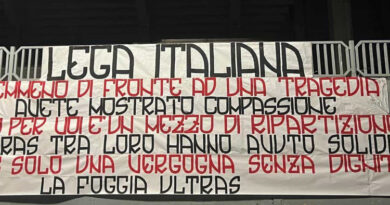 LEGA ITALIANA
EMMENO DI FRONTE AD UNA TRAGEDIA
AVETE MOSTRATO COMPASSIONE
PER VOI E' UN MEZZO DI RIPARTIZIONE
RAS TRA LORO HANNO AVUTO SOLID
SOLO UNA VERGOGNA SENZA DIGNIT
LA FOGGIA ULTRAS